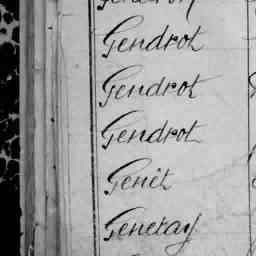 Gendrot
Gendrot
Gendrot
Genêt
Generay